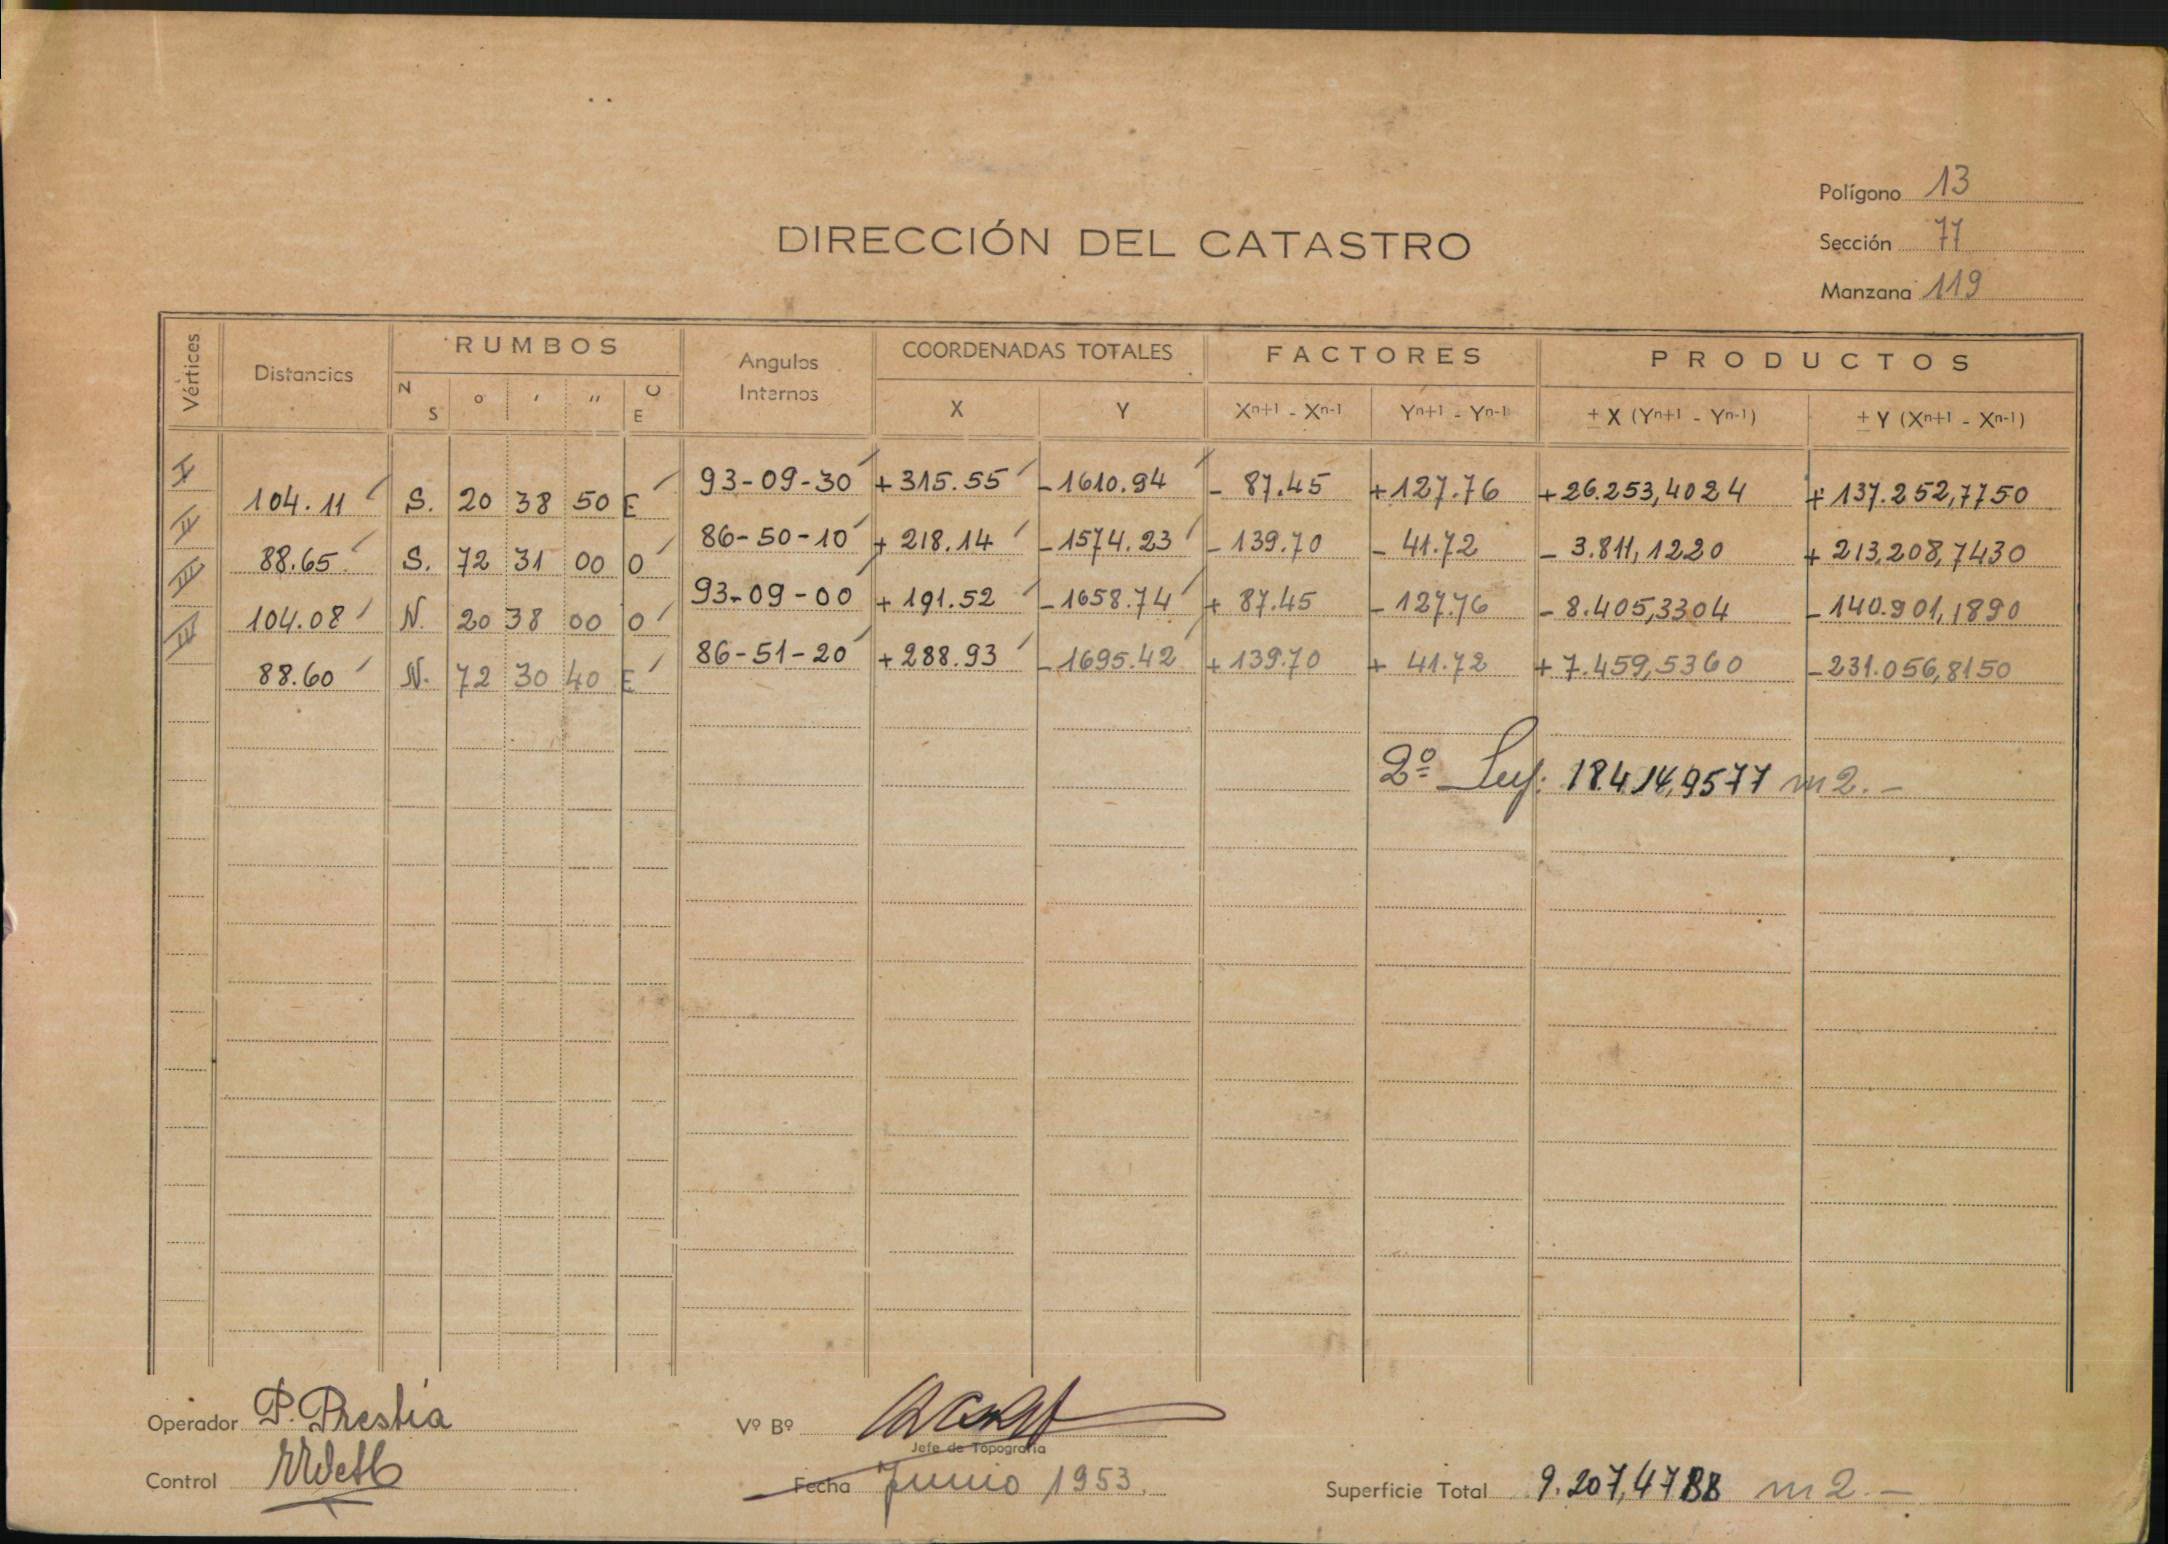 Polígono 13
Sección 77
Manzana 119
DIRECCIÓN DEL CATASTRO
Vértices Distancias RUMBOS Angulos Internos COORDENADAS TOTALES FACTORES PRODUCTOS
N S ° ' " O E X Y Xn+1 - Xn-1 Yn+1 - Yn-1 ± X (Yn+1 - Yn-1) ± Y (Xn+1 - Xn-1)
I 93-09-30 +315.55 -1610.94 - 87.45 +127.76 +26.253,4024 +137.252,7750
104.11 S. 20 38 50 E
II 86-50-10 +218.14 -1574.23 -139.70 - 41.72 -3.811,1220 +213.208,7430
88.65 S. 72 31 00 O
III 93-09-00 +191.52 -1658.74 + 87.45 -127.76 -8.405,3304 -140.901,1890
104.08 N. 20 38 00 O
IV 86-51-20 +288.93 -1695.42 +139.70 + 41.72 +7.459,5360 -231.056,8150
88.60 N. 72 30 40 E
2º Sup: 18.414,9577 m2.-
Operador P. Prestia
Vº Bº
Jefe de Topografía
Control
Fecha Junio 1953.
Superficie Total 9.207,4788 m2.-